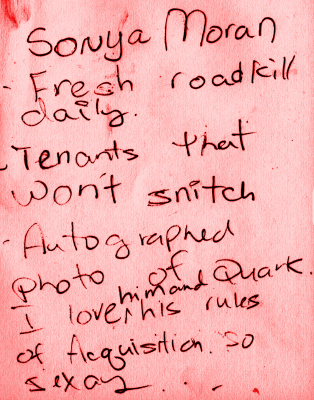 Sonya Moran
- Fresh roadkill
daily.
- Tenants that
won't snitch
- Autographed
photo of Quark.
I love him and his rules
of Acquisition. So
sexay...